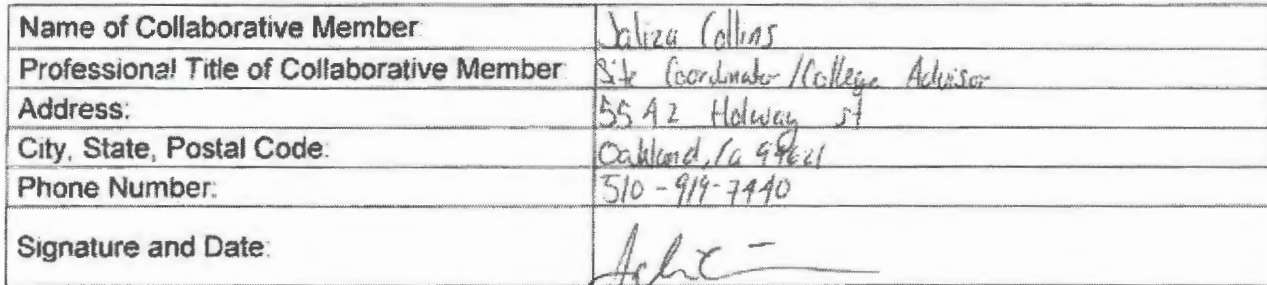 Name of Collaborative Member: Jaliza Collins
Professional Title of Collaborative Member: Site Coordinator/College Advisor
Address: 5542 Holway st
City, State, Postal Code: Oakland, Ca 94621
Phone Number: 510-919-7440
Signature and Date: